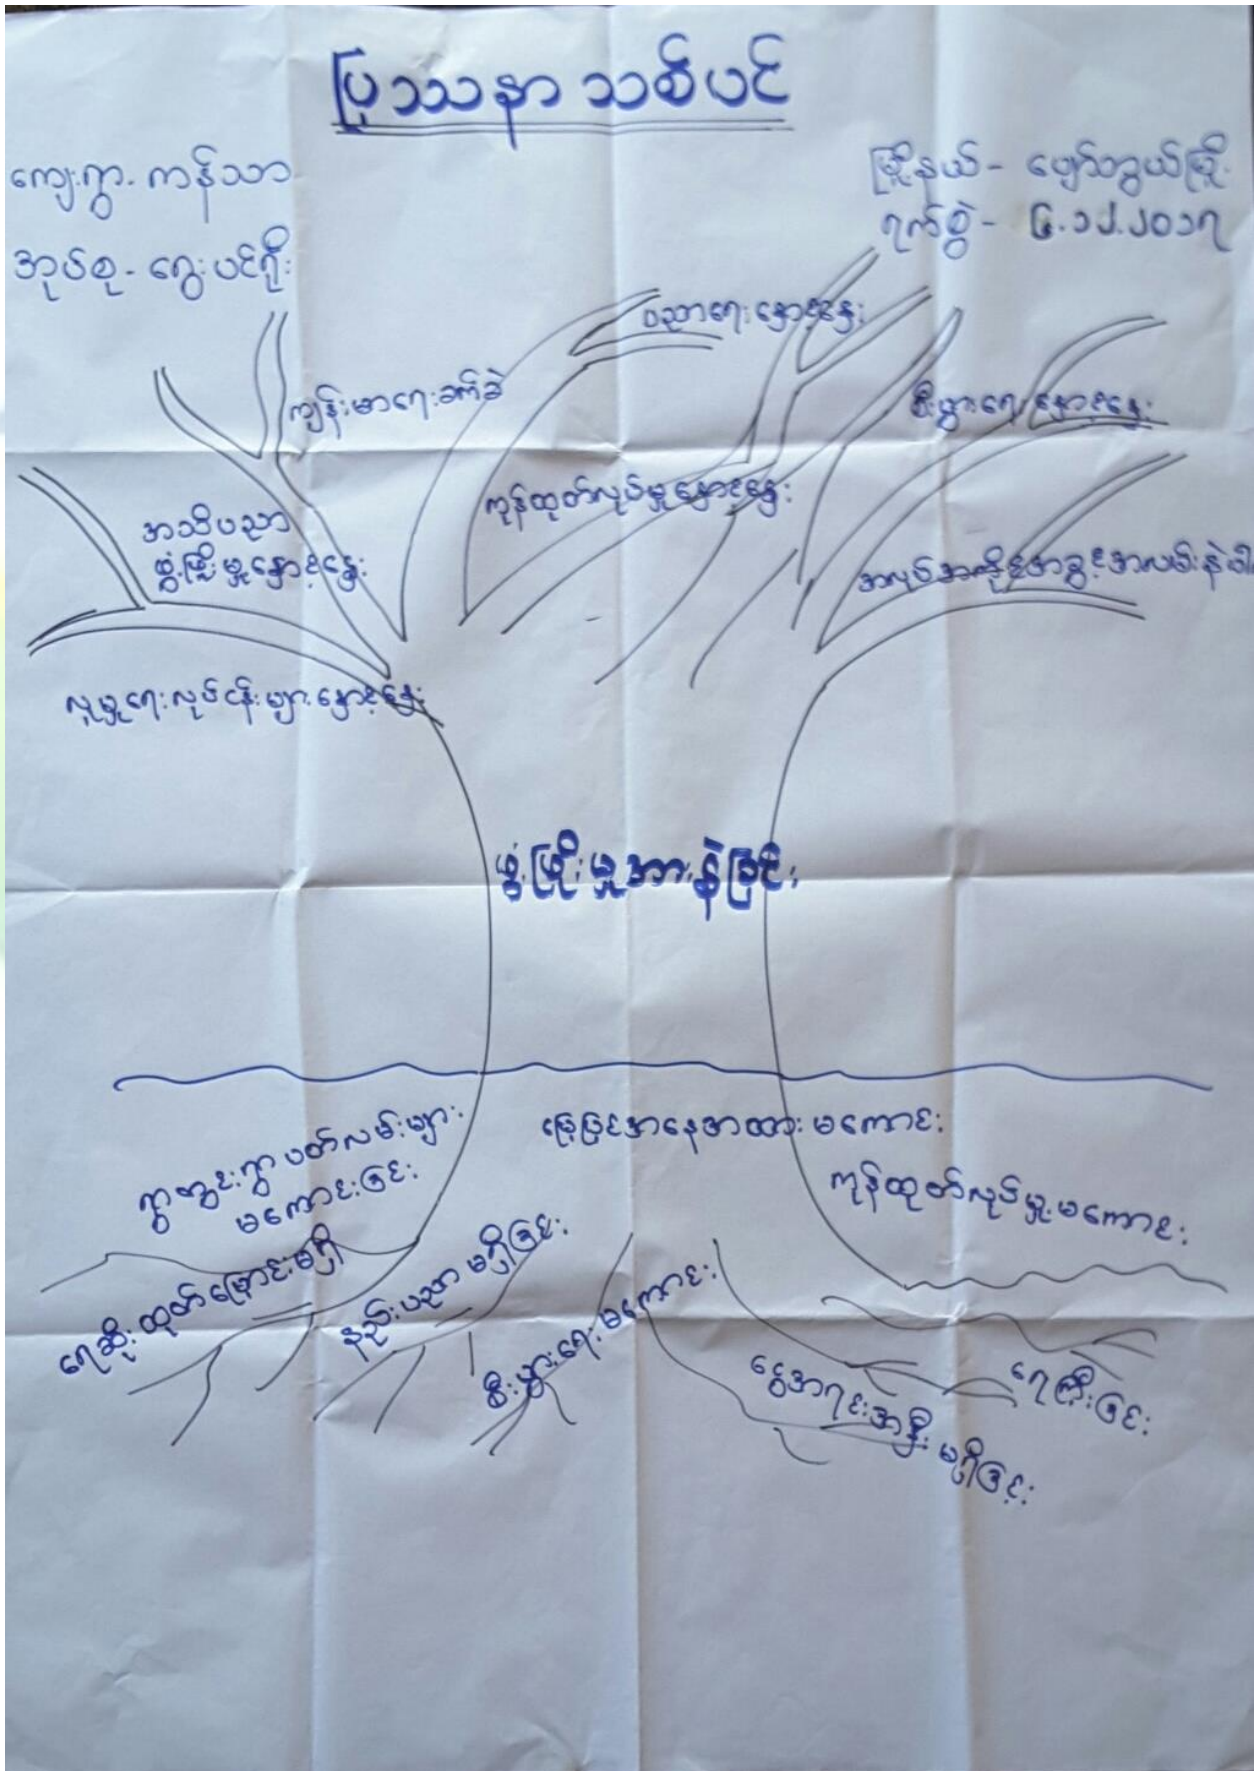 ပြဿနာ သစ်ပင်
ကျေးရွာ - ကန်သာ
မြို့နယ် - ပျော်ဘွယ်မြို့
အုပ်စု - ရွေးပင်ရိုး
ရက်စွဲ - ၆.၁၂.၂၀၁၇
ပညာရေးနှောင့်နှေး
ကျန်းမာရေးခက်ခဲ
စီးပွားရေးနှောင့်နှေး
ကုန်ထုတ်လုပ်မှုနှောင့်နှေး
အသိပညာ
ဖွံ့ဖြိုးမှုနှောင့်နှေး
အလုပ်အကိုင်အခွင့်အလမ်းနဲပါး
လူမှုရေးလုပ်ငန်းများနှောင့်နှေး
ဖွံ့ဖြိုးမှုအားနဲခြင်း
ရွာတွင်းရွာပတ်လမ်းများ
မကောင်းခြင်း
မြေပြင်အနေအထားမကောင်း
ကုန်ထုတ်လုပ်မှုမကောင်း
ရေဆိုးထုတ်မြောင်းမရှိ
နည်းပညာမရှိခြင်း
စီးပွားရေးမကောင်း
ငွေအရင်းအနှီးမရှိခြင်း
ရေကြီးခြင်း